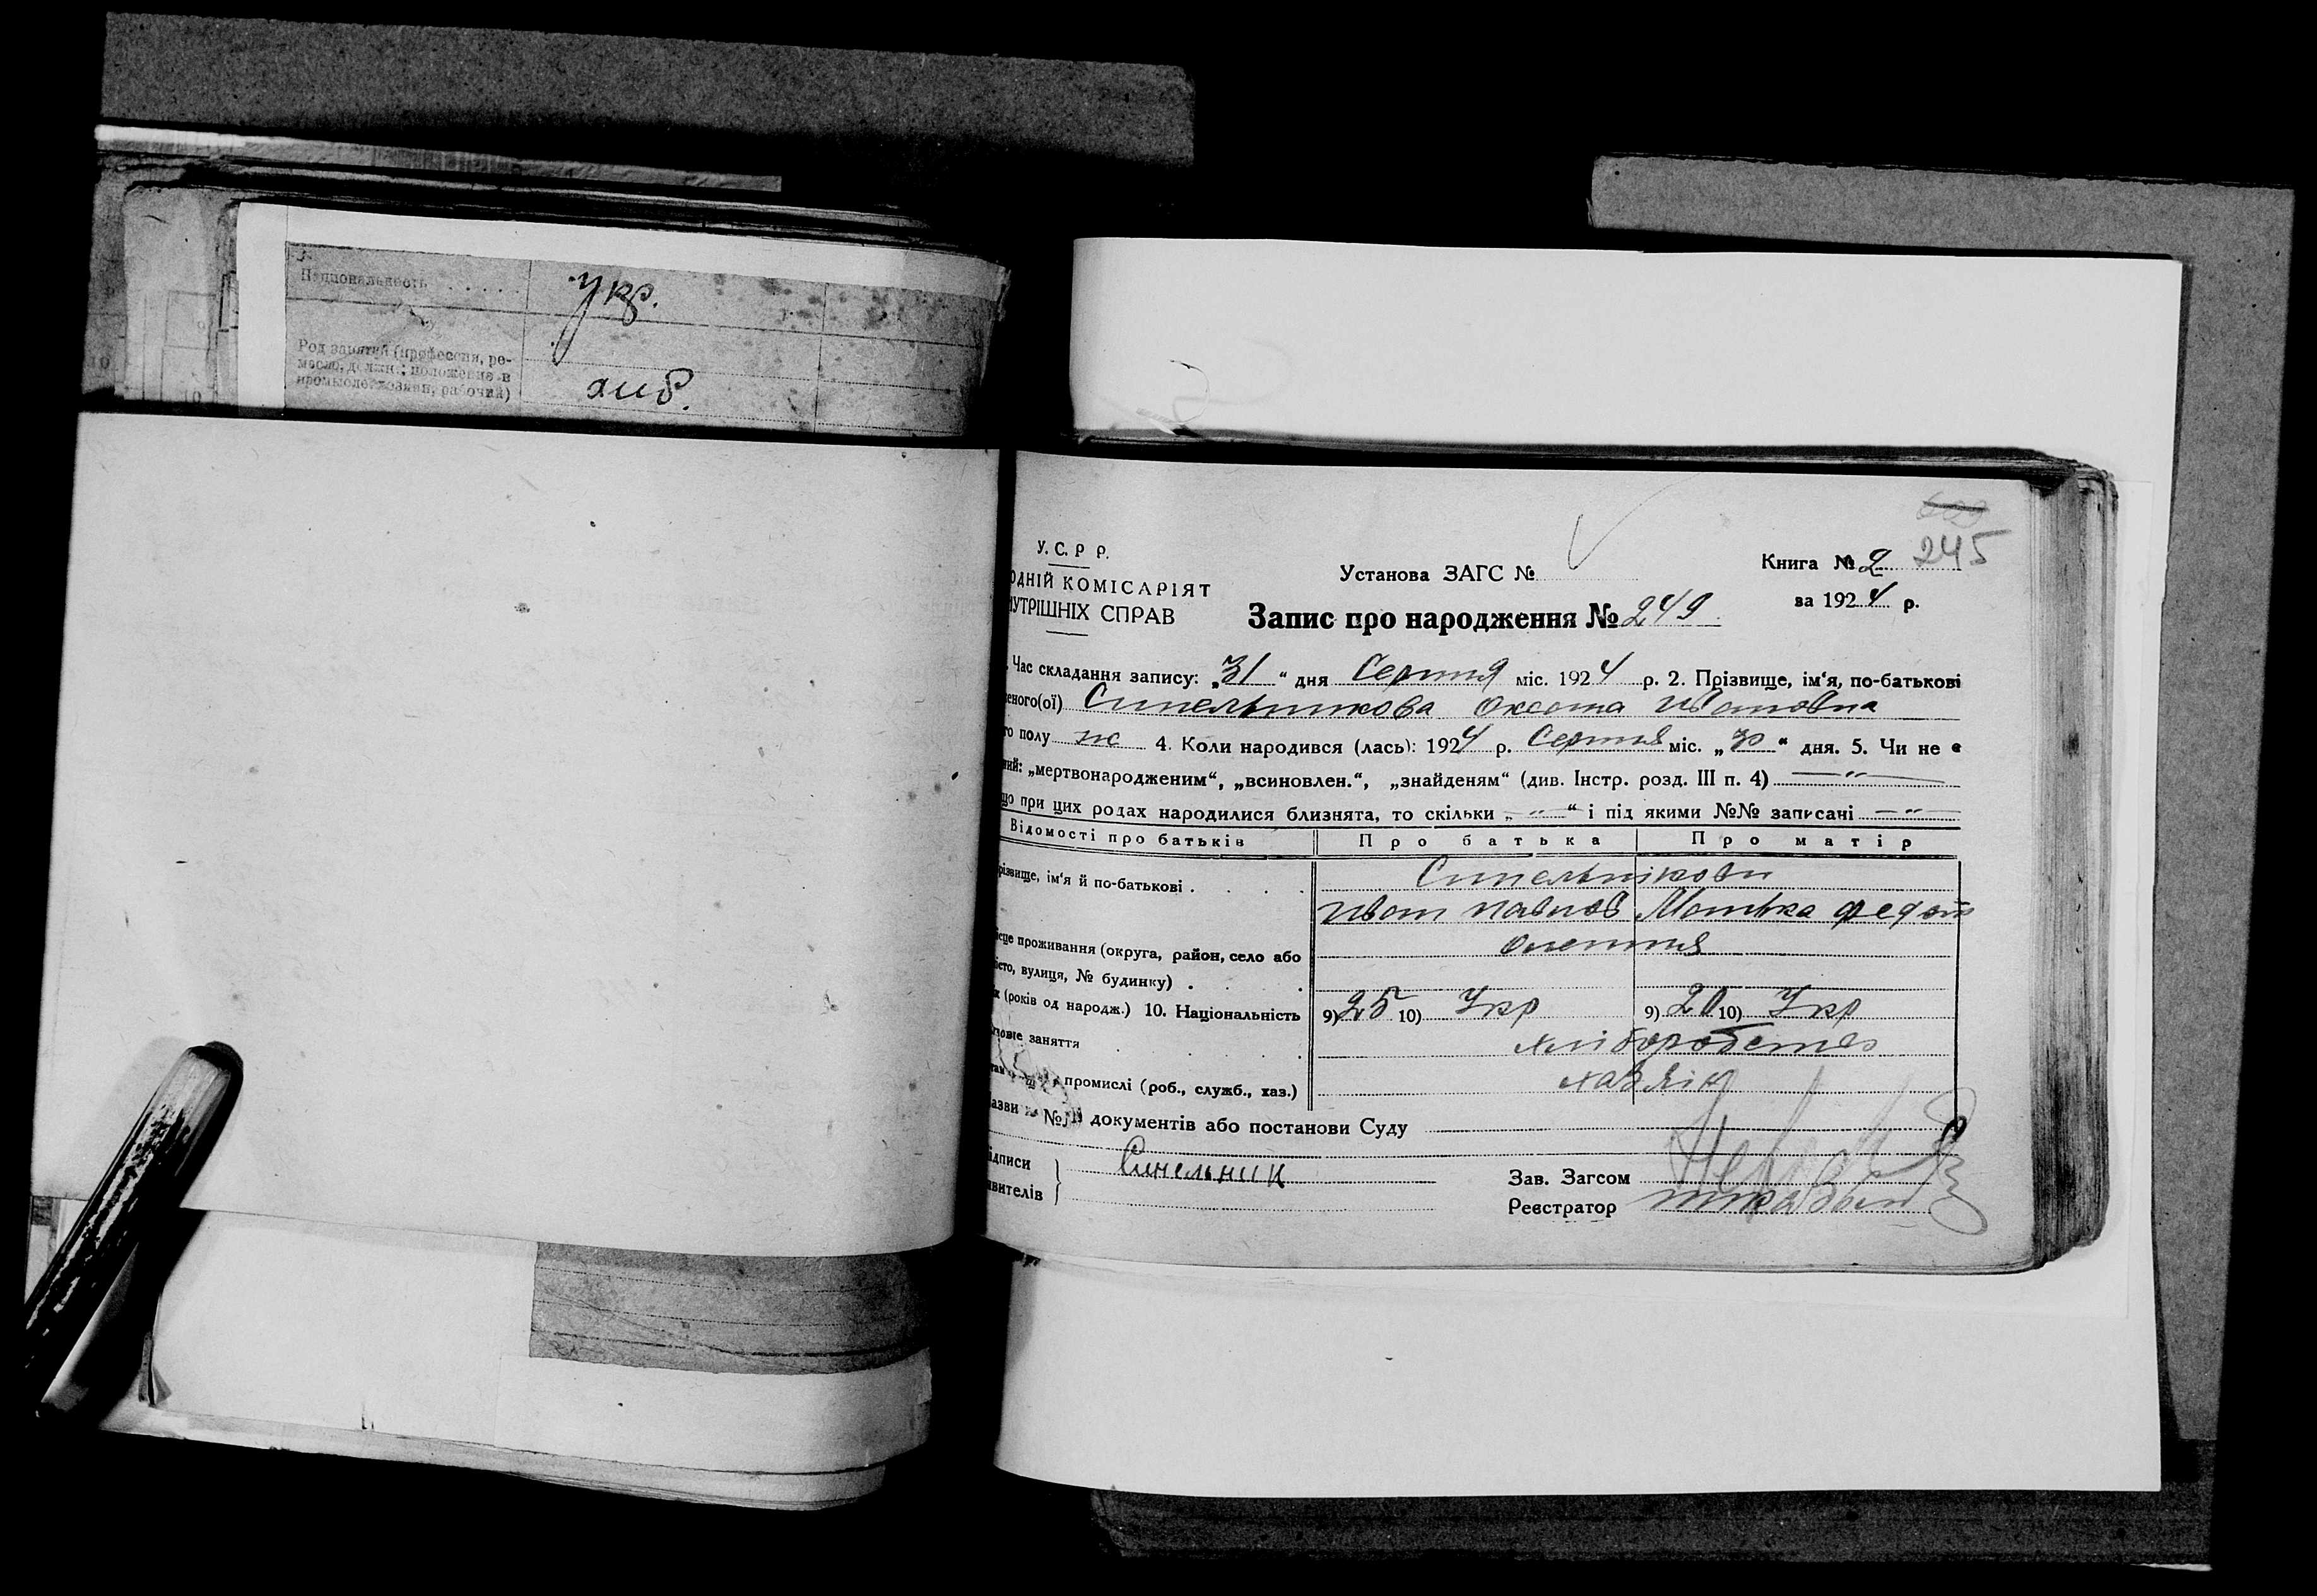 Национальность . . . . . укр.
Род занятий (профессия, ре-
месло, должн.; положение в
промысле: хозяин, рабочий) хліб.
600
245
У. С. Р. Р.
ОДНІЙ КОМІСАРІЯТ
НУТРІШНІХ СПРАВ
Установа ЗАГС №
Книга № 2
за 1924 р.
Запис про народження № 249
Час складання запису: „31“ дня Серпня міс. 1924 р. 2. Прізвище, ім‘я, по-батькові
еного(ої) Синельникова Оксана Ивановна
го полу ж 4. Коли народився (лась): 1924 р. Серпня міс. „30“ дня. 5. Чи не є
ний: „мертвонародженим“, „всиновлен.“, „знайденям“ (див. Інстр. розд. III п. 4) — „ —
що при цих родах народилися близнята, то скільки „ — „ — “ і під якими №№ записані — „ —
Відомості про батьків Про батька Про матір
різвище, ім‘я й по-батькові . . . . Синельнікови
Иван Павлов Мотька Федот
ісце проживання (округа, район, село або
істо, вулиця, № будинку) . .
к (років од народж.) 10. Національність 9) 25 10) Укр 9) 20 10) Укр
заняття . . . . хліборобство
промислі (роб., служб., хаз.) хазяін
азви №№ документів або постанови Суду
ідписи
явителів
Синельник
Зав. Загсом
Реєстратор